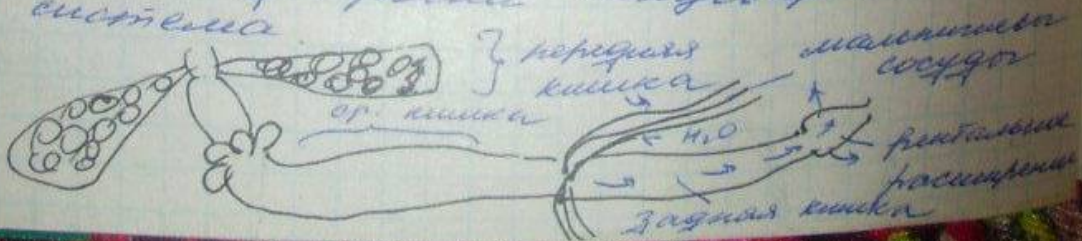 система
передняя
кишка
ср. кишка
мальпигиевы
сосуды
H₂O
ректальные
расширения
задняя кишка